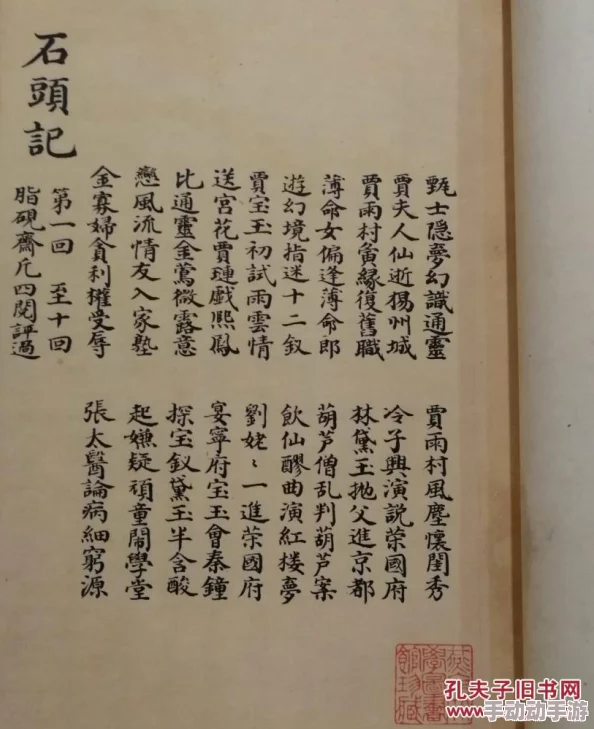 甄士隱夢幻識通靈 賈雨村風塵懷閨秀
賈夫人仙逝揚州城 冷子興演説荣國府
賈雨村夤緣復舊職 林黛玉抛父進京都
薄命女偏逢薄命郎 葫芦僧乱判葫芦案
遊幻境指迷十二釵 飲仙醪曲演紅楼夢
賈宝玉初試雨雲情 劉姥〻一進荣國府
送宮花賈璉戲熙鳳 宴寧府宝玉會秦鐘
比通靈金鶯微露意 探宝釵黛玉半含酸
戀風流情友入家塾 起嫌疑頑童鬧學堂
金寡婦貪利權受辱 張太醫論病細窮源
石頭記
第一回 至十回
脂硯齋凢四閱評過
學圖書
館珍藏
孔夫子旧书网
手动动手游